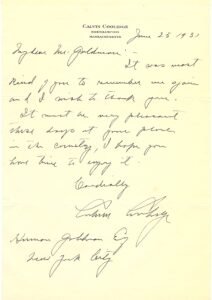 CALVIN COOLIDGE
NORTHAMPTON
MASSACHUSETTS
June 25 1931
My dear Mr. Goldman:-
It was most
kind of you to remember me again
and I wish to thank you.
It must be very pleasant
these days at your place
in the country. I hope you
have time to enjoy it.
Cordially
Calvin Coolidge
Herman Goldman Esq
New York City